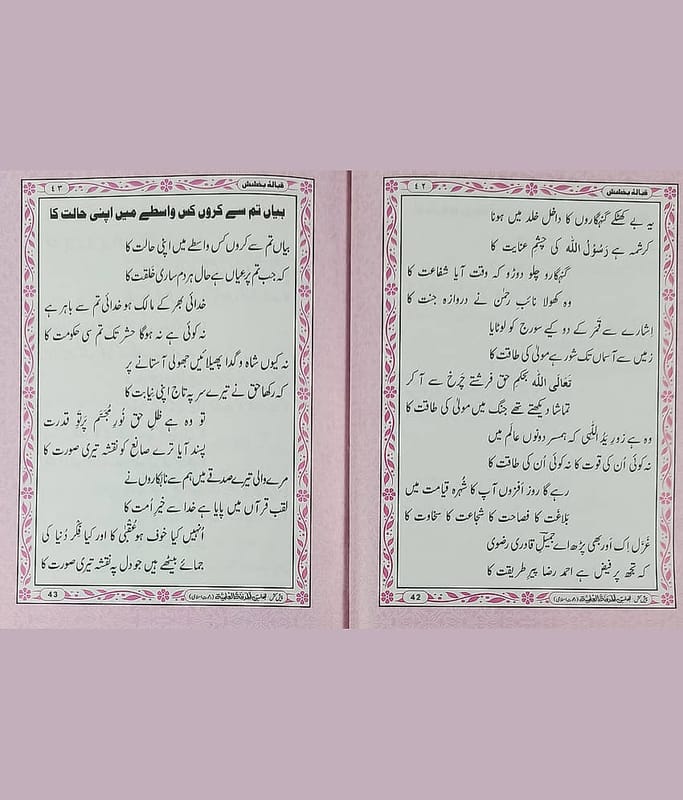 قبالۂ بخشش
٤٢
یہ بے کھٹکے گنہگاروں کا داخل خلد میں ہونا
کرشمہ ہے رَسُوْلُ اللّٰہ کی چشمِ عنایت کا
گنہگارو چلو دوڑو کہ وقت آیا شفاعت کا
وہ کھولا نائبِ رحمٰن نے دروازہ جنت کا
اِشارے سے قمر کے دو کیے سورج کو لوٹایا
زمیں سے آسماں تک شور ہے مولیٰ کی طاقت کا
تَعَالَی اللّٰہ بحکمِ حق فرشتے چرخ سے آ کر
تماشا دیکھتے تھے جنگ میں مولیٰ کی طاقت کا
وہ ہے زورِ یدُ اللّٰہی کہ ہمسر دونوں عالم میں
نہ کوئی اُن کی قوت کا نہ کوئی اُن کی طاقت کا
رہے گا روز اَفزوں آپ کا شُہرہ قیامت میں
بلاغت کا فصاحت کا شجاعت کا سخاوت کا
غَزَل اِک اور بھی پڑھ اے جمیلِ قادری رضوی
کہ تجھ پر فیض ہے احمد رضا پیرِ طریقت کا
42
قبالۂ بخشش
٤٣
بیاں تم سے کروں کس واسطے میں اپنی حالت کا
بیاں تم سے کروں کس واسطے میں اپنی حالت کا
کہ جب تم پر عیاں ہے حال ہر دم ساری خلقت کا
خدائی بھر کے مالک ہو خدائی تم سے باہر ہے
نہ کوئی ہے نہ ہوگا حشر تک تم سی حکومت کا
نہ کیوں شاہ و گدا پھیلائیں جھولی آستانے پر
کہ رکھا حق نے تیرے سر پہ تاج اپنی نیابت کا
تو وہ ہے ظلِ حق نُورِ مُجسَّم پَرتَوِ قدرت
پسند آیا ترے صانع کو نقشہ تیری صورت کا
مرے والی تیرے صدقے میں ہم سے نابکاروں نے
لقب قرآں میں پایا ہے خدا سے خیرِ اُمت کا
اُنہیں کیا خوف ہو عُقبیٰ کا اور کیا فِکْر دُنیا کی
جمائے بیٹھے ہیں جو دل پہ نقشہ تیری صورت کا
43